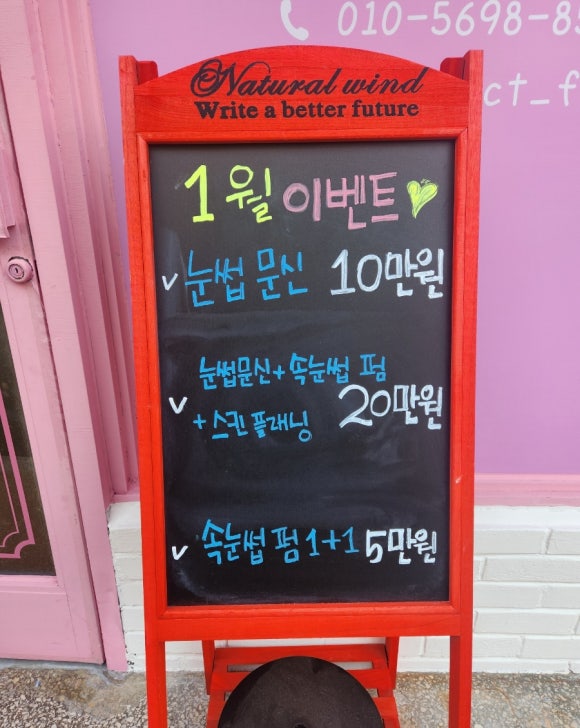 010-5698-8
Natural wind
Write a better future
ct_f
1월 이벤트
✓ 눈썹 문신 10만원
눈썹문신+속눈썹 펌
✓ 20만원
+스킨플래닝
✓ 속눈썹 펌 1+1 5만원